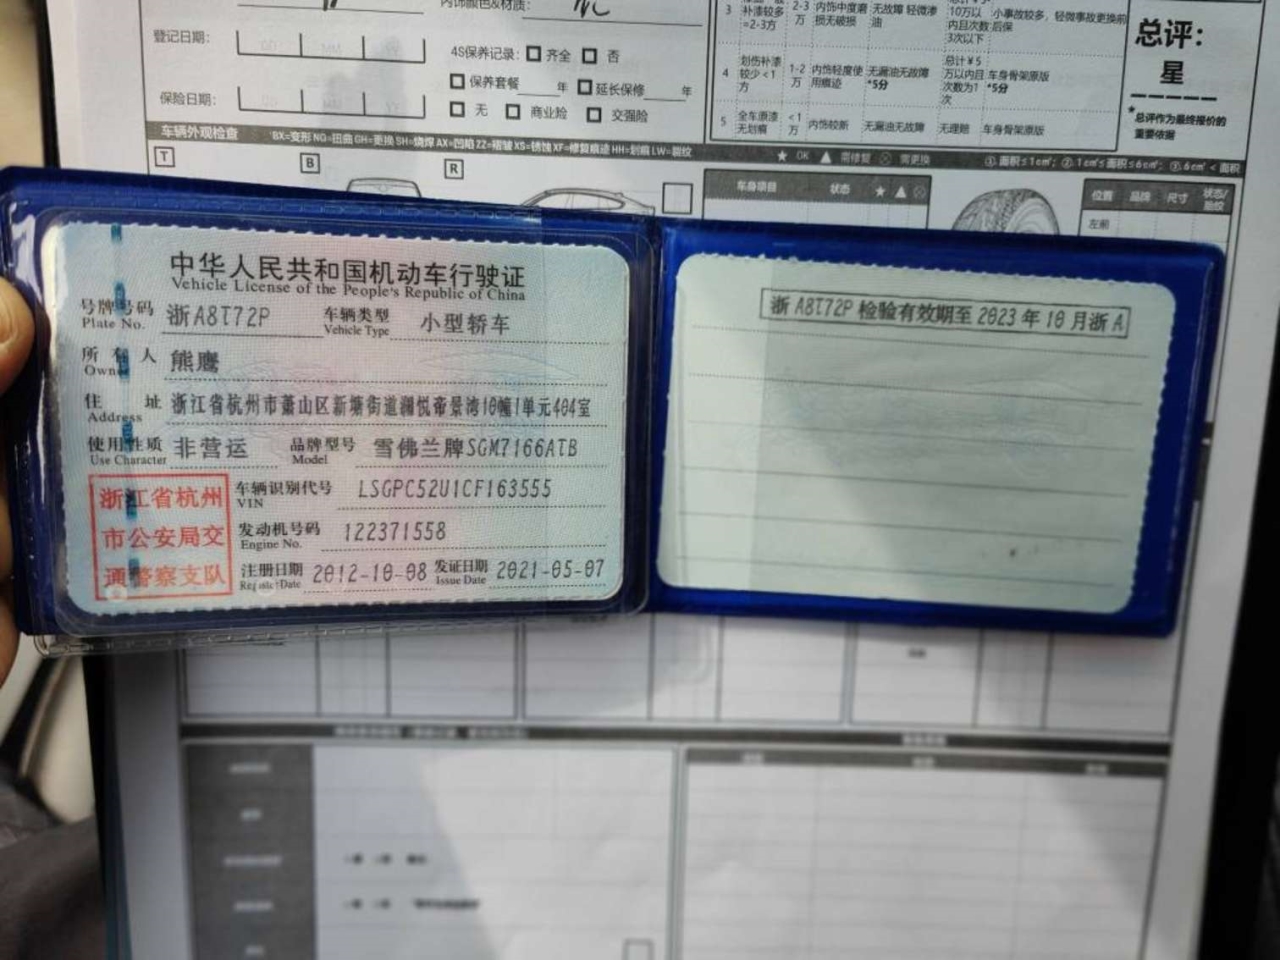 内饰颜色&材质：
登记日期：
4S保养记录： 齐全 否
保养套餐 年 延长保修 年
保险日期：
无 商业险 交强险
3 补漆较多=2-3方 2-3万 内饰中度磨损无破损 无故障 轻微渗油 10万以内且次数3次以下 小事故较多，轻微事故更换前后保
4 划伤补漆较少<1方 1-2万 内饰轻度使用痕迹 无漏油无故障*5分 总计￥5万以内且次数为1次 车身骨架原版*5分
5 全车原漆无划痕 <1万 内饰较新 无漏油无故障 无理赔 车身骨架原版
总评：
星
*总评作为最终报价的重要依据
车辆外观检查 BX=变形 NQ=扭曲 GH=更换 SH=烧焊 AX=凹陷 ZZ=褶皱 XS=锈蚀 XF=修复痕迹 HH=划痕 LW=裂纹
★ OK ▲ 需修复 ⊗ 需更换 ①.面积≤1c㎡; ②.1c㎡≤面积≤6c㎡; ③.6c㎡<面积
T B R
车身项目 状态 ★ ▲ ⊗
位置 品牌 尺寸 状态/
左前
中华人民共和国机动车行驶证
Vehicle License of the People's Republic of China
号牌号码 浙A8T72P 车辆类型 小型轿车
Plate No. Vehicle Type
所有人 熊鹰
Owner
住址 浙江省杭州市萧山区新塘街道澜悦帝景湾10幢1单元404室
Address
使用性质 非营运 品牌型号 雪佛兰牌SGM7166ATB
Use Character Model
浙江省杭州
市公安局交
通警察支队
车辆识别代号 LSGPC52U1CF163555
VIN
发动机号码 122371558
Engine No.
注册日期 2012-10-08 发证日期 2021-05-07
Register Date Issue Date
浙A8T72P 检验有效期至 2023 年 10 月浙A